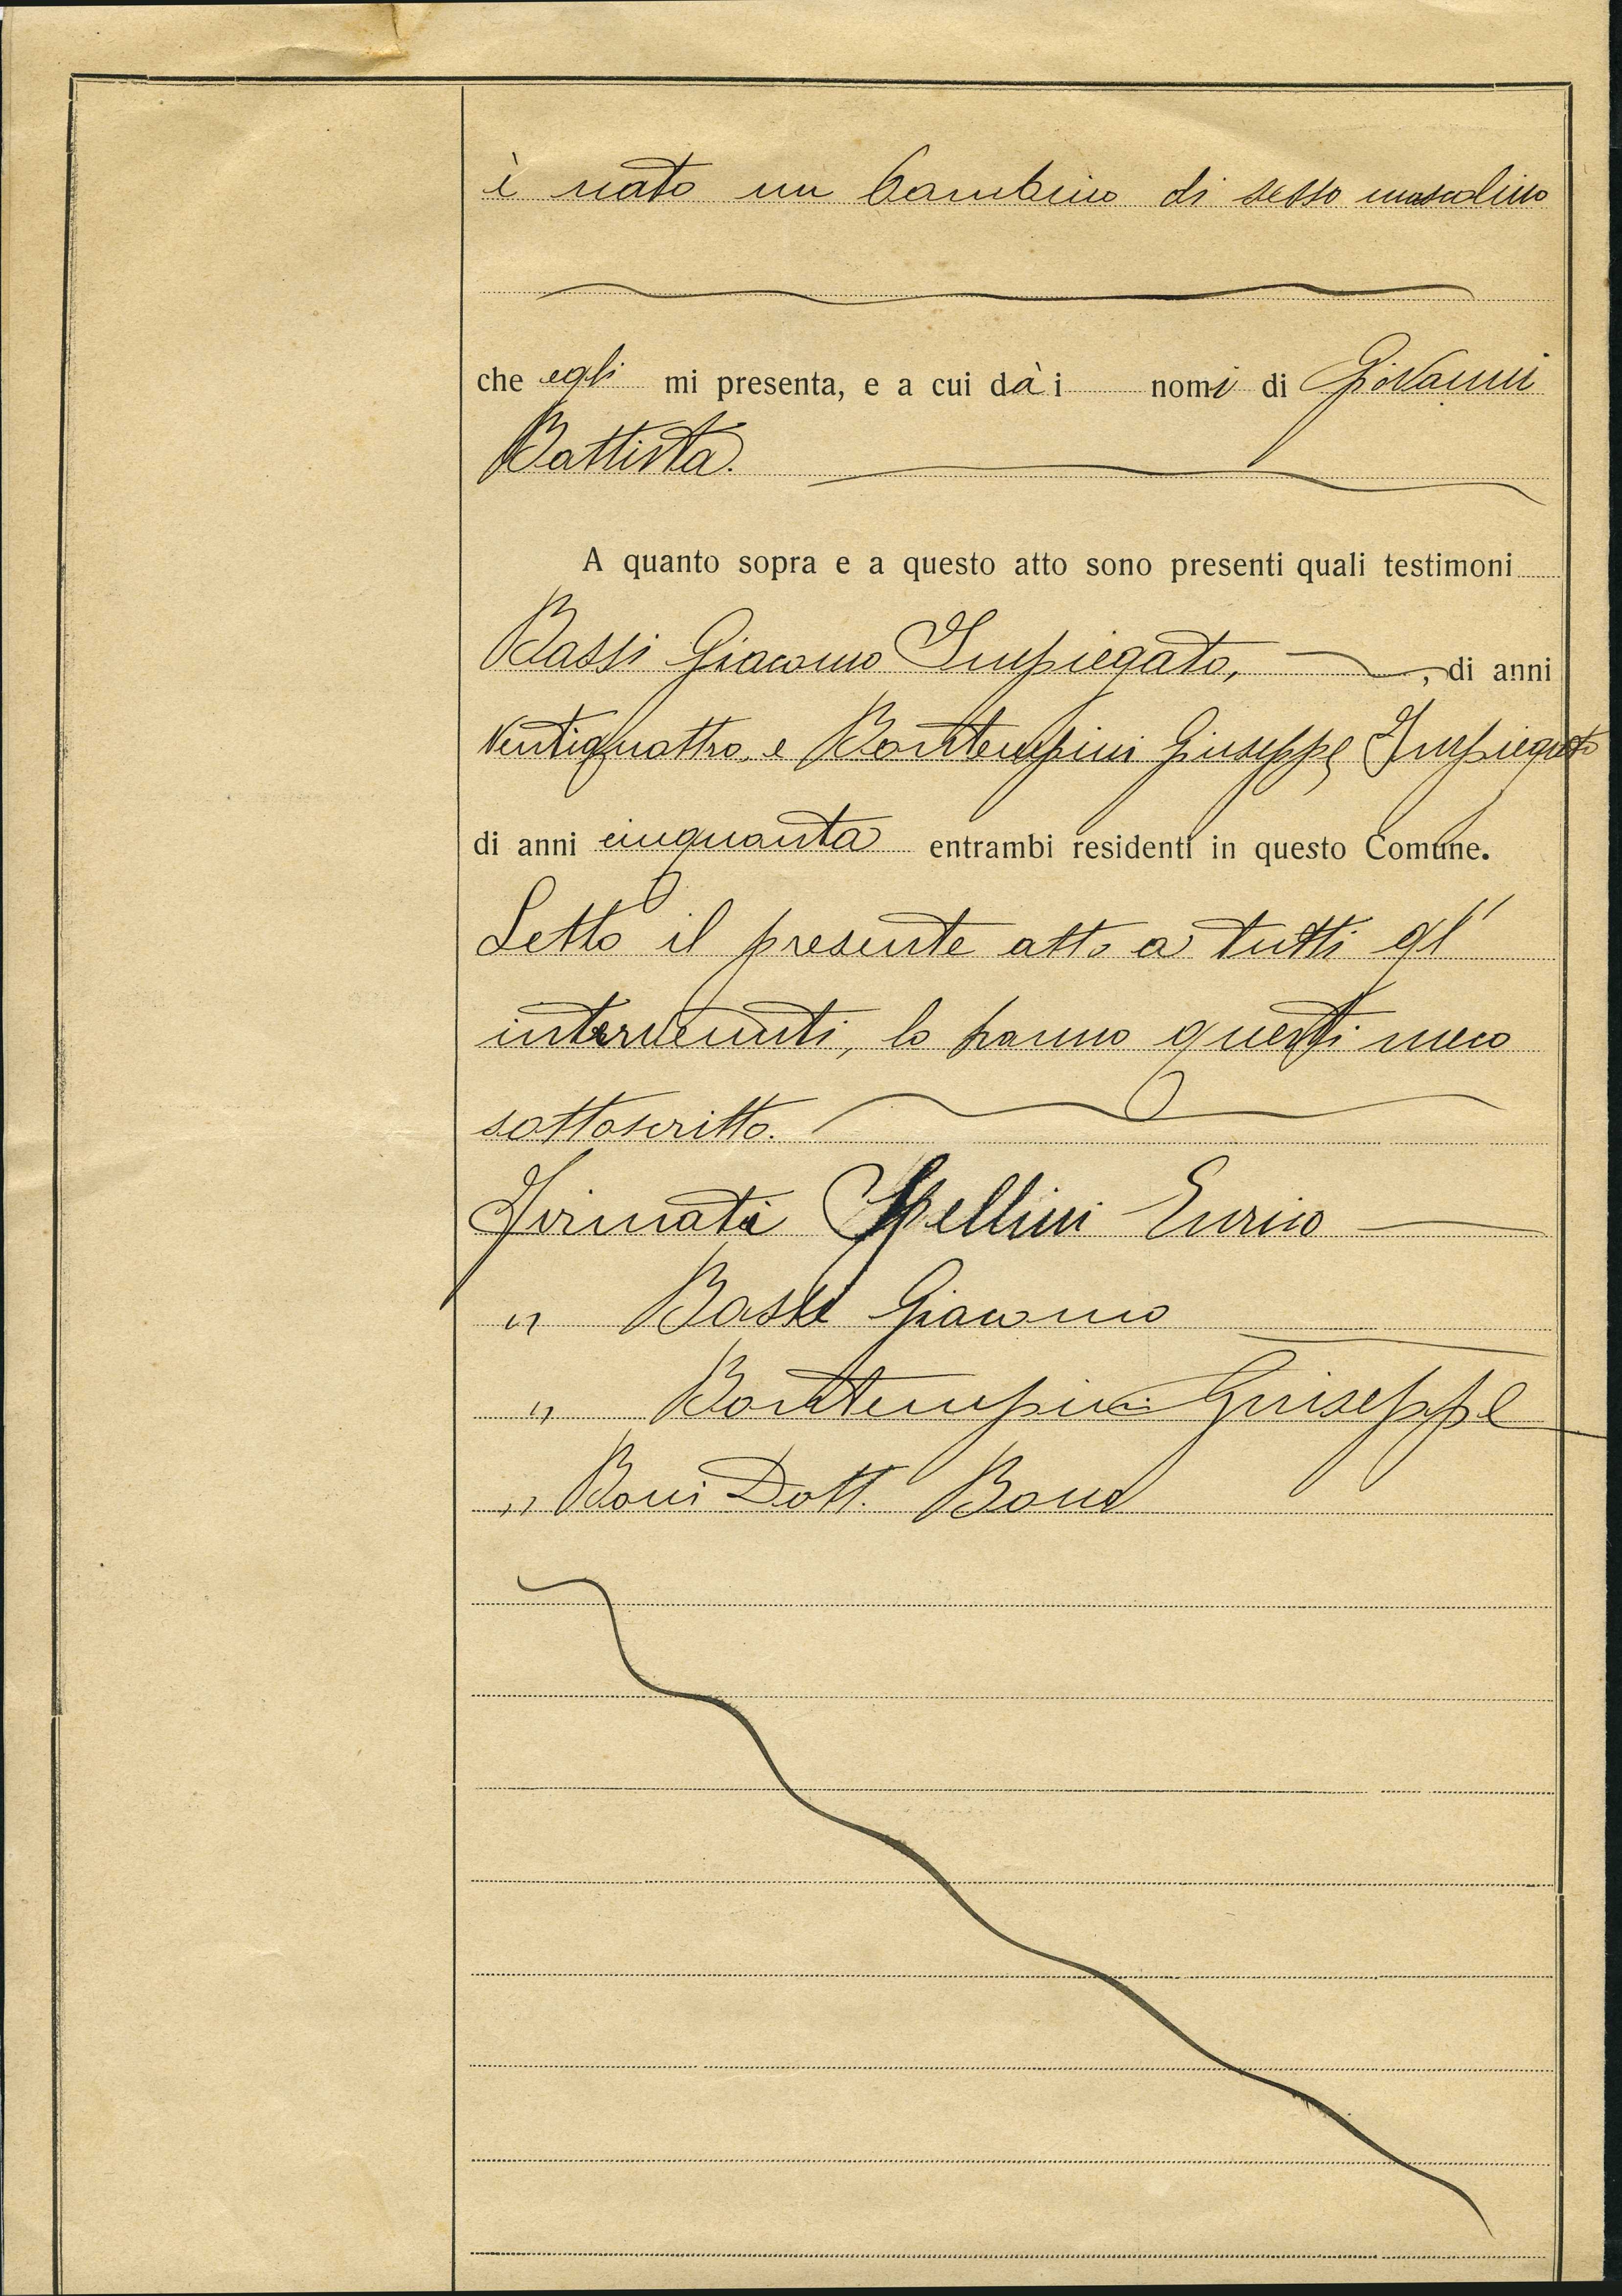 è nato un bambino di sesso mascolino
che egli mi presenta, e a cui dà i nomi di Giovanni
Battista.
A quanto sopra e a questo atto sono presenti quali testimoni
Bassi Giacomo Impiegato, , di anni
ventiquattro, e Bontempini Giuseppe Impiegato
di anni cinquanta entrambi residenti in questo Comune.
Letto il presente atto a tutti gl'
intervenuti, lo hanno questi meco
sottoscritto.
Firmati Spellini Enrico
" Bassi Giacomo
" Bontempini Giuseppe
" Boni Dott. Bono